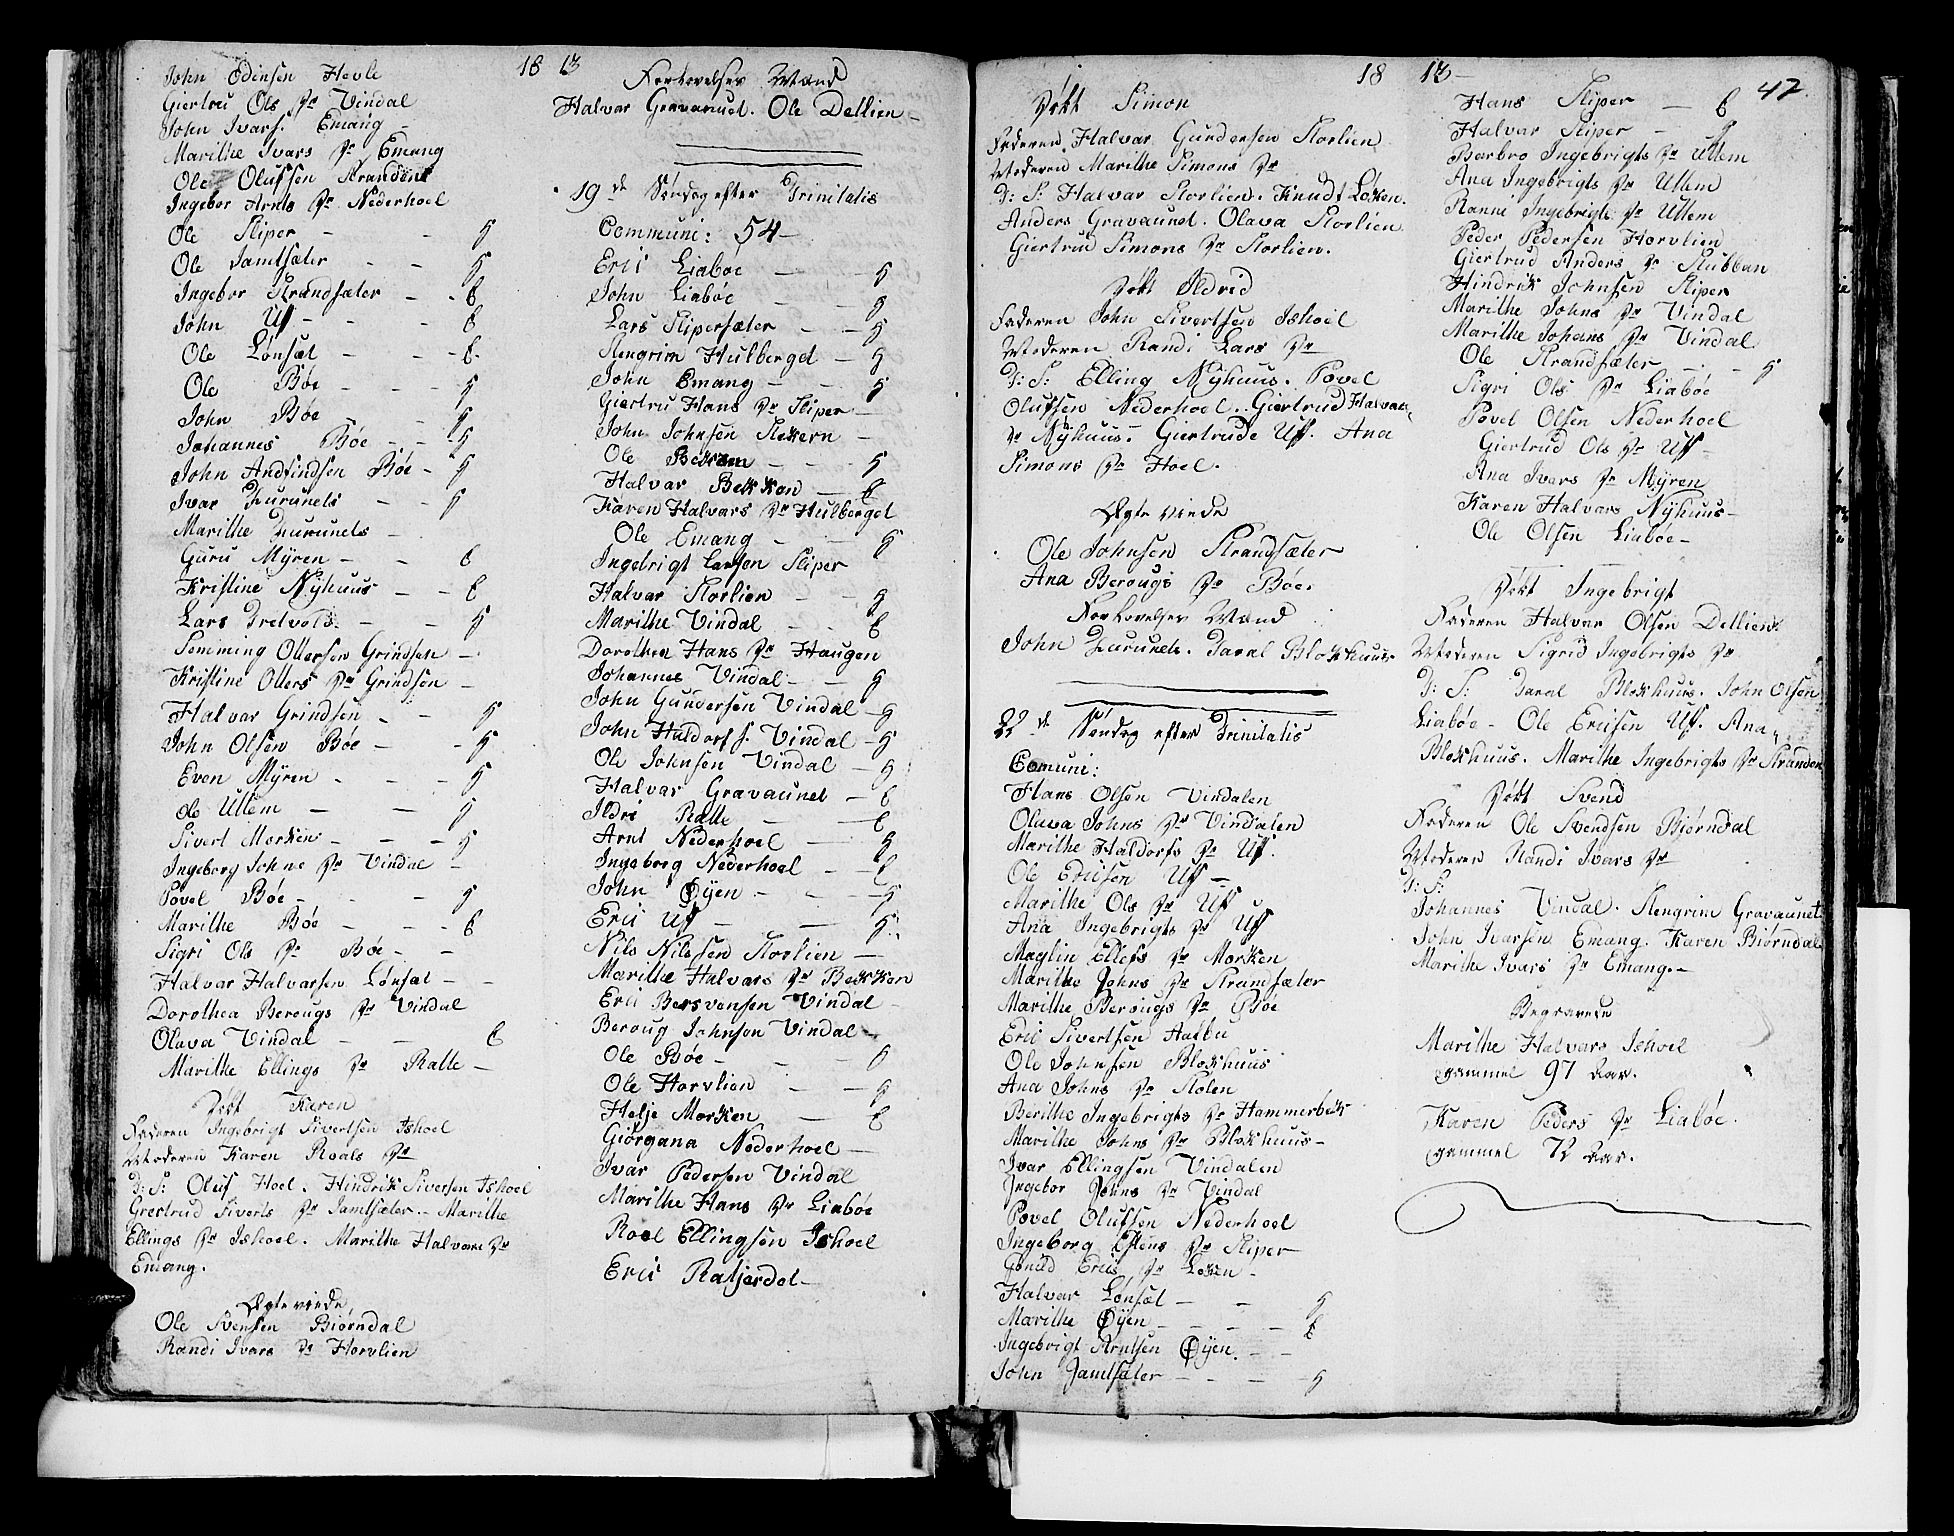 18 13
John Edinsen Hevle
Giertru Ols Dr Vindal
John Ivars. Emang -
Marithe Ivars Dr Emang
Ole Olufsen
Ingebor Arnts Dr Nederhoel
Ole Sliper - - 5
Ole Jamtsæter - - 5
Ingebor Strandsæter - - E
John Uf - - - E
Ole Lønsæt - - E.
Ole Bøe - - - 5
John Bøe - - 5
Johannes Bøe - - 5
John Andfindsen Bøe - 5
Ivar - - 5
Marithe -
Guru Myren - - E
Kristine Nyhuus - - E
Lars Tretvold - - 5
Semming Ottersen Grindsen -
Kristine Otters Dr Grindsen -
Halvar Grindsen - - 5
John Olsen Bøe - - 5
Even Myren - - 5
Ole Uttem - - 5
Sivert Morken - - - 5
Ingeborg Johns Dr Vindal -
Povel Bøe - - - 5
Marithe Bøe - - - E
Sigri Ols Dr Bøe - -
Halvar Halvarsen Lønsæt - -
Dorothea Berougs Dr Vindal
Olava Vindal - - - E
Marithe Ellings Dr Ratte -
Døbt Karen
Faderen Ingebrigt Sivertsen Ishoel
Moderen Karen Roals Dr
D: S: Oluf Hoel. Hindrik Siversen Ishoel
Giertrud Siverts Dr Jamtsæter. Marithe
Ellings Dr Ishoel. Marithe Halvars Dr
Emang.
Ægteviede,
Ole Svensen Biørndal
Randi Ivars Dr Horvlien
Forlovelses Mænd
Halvar Gravaunet. Ole Detlien -
19de Søndag efter Trinitatis
Communi: 54 -
Eric Liabøe - - 5
John Liabøe - - 5
Lars Slipersæter - - 5
Stengrim Hulberget - 5
John Emang - - 5
Giertru Hans Dr Sliper -
John Johnsen Stokern -
Ole Bekken - - 5
Halvar Bekken - E
Karen Halvars Dr Hulberget
Ole Emang - - 5
Ingebrigt Larsen Sliper
Halvar Storlien - - 5
Marithe Vindal - - E
Dorothea Hans Dr Haugen
Johannes Vindal - - 5
John Gundersen Vindal - 5
John Haldorfs. Vindal - 5
Ole Johnsen Vindal - 5
Halvar Gravaunet - E
Ildri Ratte - - E
Arnt Nederhoel - 5
Ingeborg Nederhoel - - E
John Øyen - - 5
Eric Uf - - 5.
Nils Nilssen Storlien -
Marithe Halvars Dr Bekken
Eric Bersvensen Vindal -
Beroug Johnsen Vindal -
Ole Bøe - - 5
Ole Horvlien - - 5
Helje Morken - E
Giørgana Nederhoel -
Ivar Pedersen Vindal
Marithe Hans Dr Liabøe
Roel Ellingsen Ishoel
Eric Ratjerdet -
18 13 -
42.
Døbt Simon
Faderen Halvar Gundersen Storlien
Moderen Marithe Simons Dr
D: S: Halvar Storlien. Knudt Løken.
Anders Gravaunet. Olava Storlien
Giertrud Simons Dr Storlien.
Døbt Ildrid
Faderen John Sivertsen Ishoel
Moderen Randi Lars Dr
D: S: Elling Nyhuus. Povel
Olufsen Nederhoel. Giertrud Halvars
Dr Nyhuus. Giertrude Uf. Ana
Simons Dr Hoel.
Ægteviede
Ole Johnsen Strandsæter
Ana Berougs Dr Bøe.
Forlovelses Mænd
John Blokhuus
22de Søndag efter Trinitatis
Comuni:
Hans Olsen Vindalen
Olava Johns Dr Vindalen
Marithe Haldorfs Dr Uf.
Ole Ericsen Uf -
Marithe Ols Dr Uf
Ana Ingebrigts Dr Uf
Maglin Ellefs Dr Morken
Marithe Johns Dr Strandsæter
Marithe Berougs Dr Bøe
Eric Sivertsen Aalbu
Ole Johnsen Blokhuus
Ana Johns Dr Stølen
Berithe Ingebrigts Dr Hammerbek
Marithe Johns Dr Blokhuus -
Ivar Ellingsen Vindalen
Ingebor Johns Dr Vindal
Povel Olufsen Nederhoel
Ingeborg Estens Dr Sliper
Gunild Erics Dr Løken -
Halvar Lønsæt - - 5
Marithe Øyen - - - E
Ingebrigt Arntsen Øyen. - -
John Jamtsæter - - - 5
Hans Sliper - E
Halvar Sliper - 5
Barbro Ingebrigts Dr Uttem
Ana Ingebrigts Dr Uttem
Ranni Ingebrigts Dr Uttem
Peder Pedersen Horvlien
Giertrud Anders Dr Stubban
Hindrik Johnsen Sliper
Marithe Johns Dr Vindal
Marithe Johans Dr Vindal
Ole Strandsæter - - 5
Sigri Ols Dr Liabøe
Povel Olsen Nederhoel
Giertrud Ols Dr Uf -
Ana Ivars Dr Myren
Karen Halvars Nyhuus -
Ole Olsen Liabøe -
Døbt Ingebrigt
Faderen Halvar Olsen Detlien.
Moderen Sigrid Ingebrigts Dr
D: S: Blokhuus. John Olsen
Liabøe - Ole Ericsen Uf. Ana
Blokhuus. Marithe Ingebrigts Dr Stranden
Døbt Svend
Faderen Ole Svendsen Bjørndal
Moderen Randi Ivars Dr
D: S:
Johannes Vindal. Stengrim Gravaunet
John Ivarsen Emang. Karen Biørndal
Marithe Ivars Dr Emang. -
Begravede
Marithe Halvars Ishoel
gammel 97 Aar.
Karen Peders Dr Liabøe.
gammel 72 Aar.